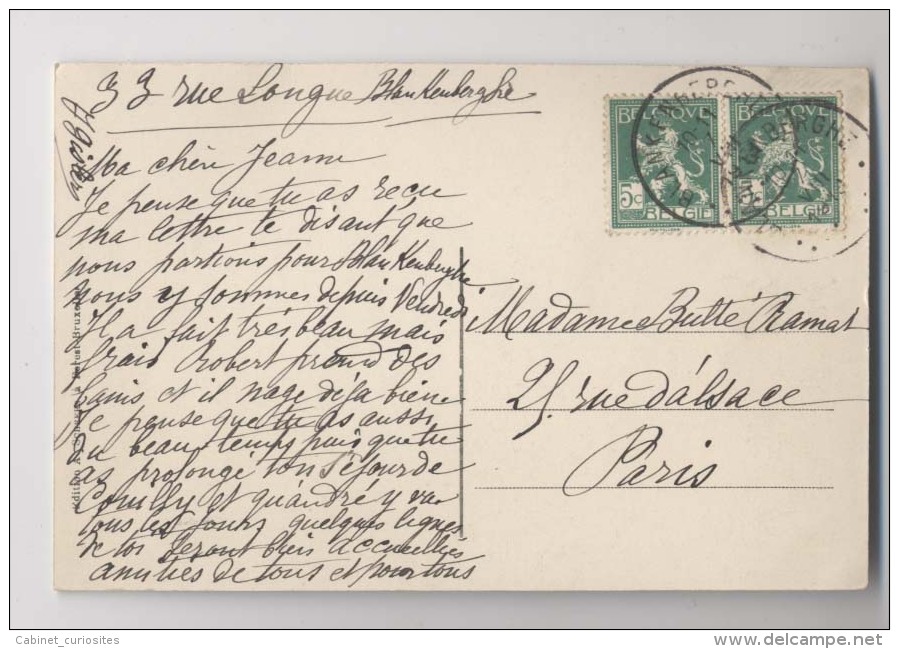 33 rue Longue Blankenberghe
Ma chère Jeanne
Je pense que tu as reçu
ma lettre te disant que
nous partions pour Blankenberghe
nous y sommes depuis Vendredi
Il a fait très beau mais
frais Robert prend des
bains et il nage déjà bien
Je pense que tu as aussi
du beau temps puisque tu
as prolongé ton séjour de
Couilly et qu'André y va
tous les jours quelques lignes
de toi seront bien accueillies
amitiés de tous et pour tous
Madame Butté Ramat
25, rue d'alsace
Paris
BELGIQUE
5c
BELGIË
BELGIQUE
BELGIË
BLANKENBERGHE
Cabinet_curiosites
www.delcampe.net